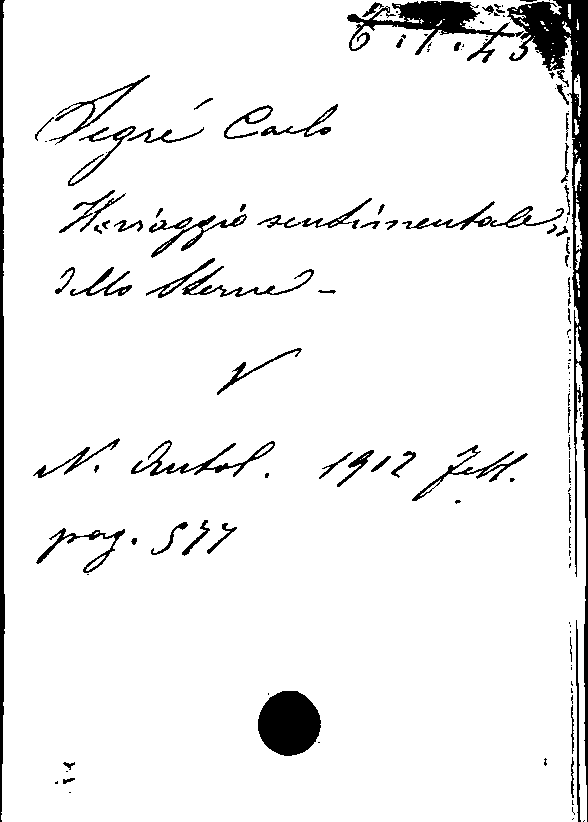 6.1.43
Segré Carlo
Il «viaggio sentimentale»
dello Sterne -
V
N. Antol. 1912 Febb.
pag. 577